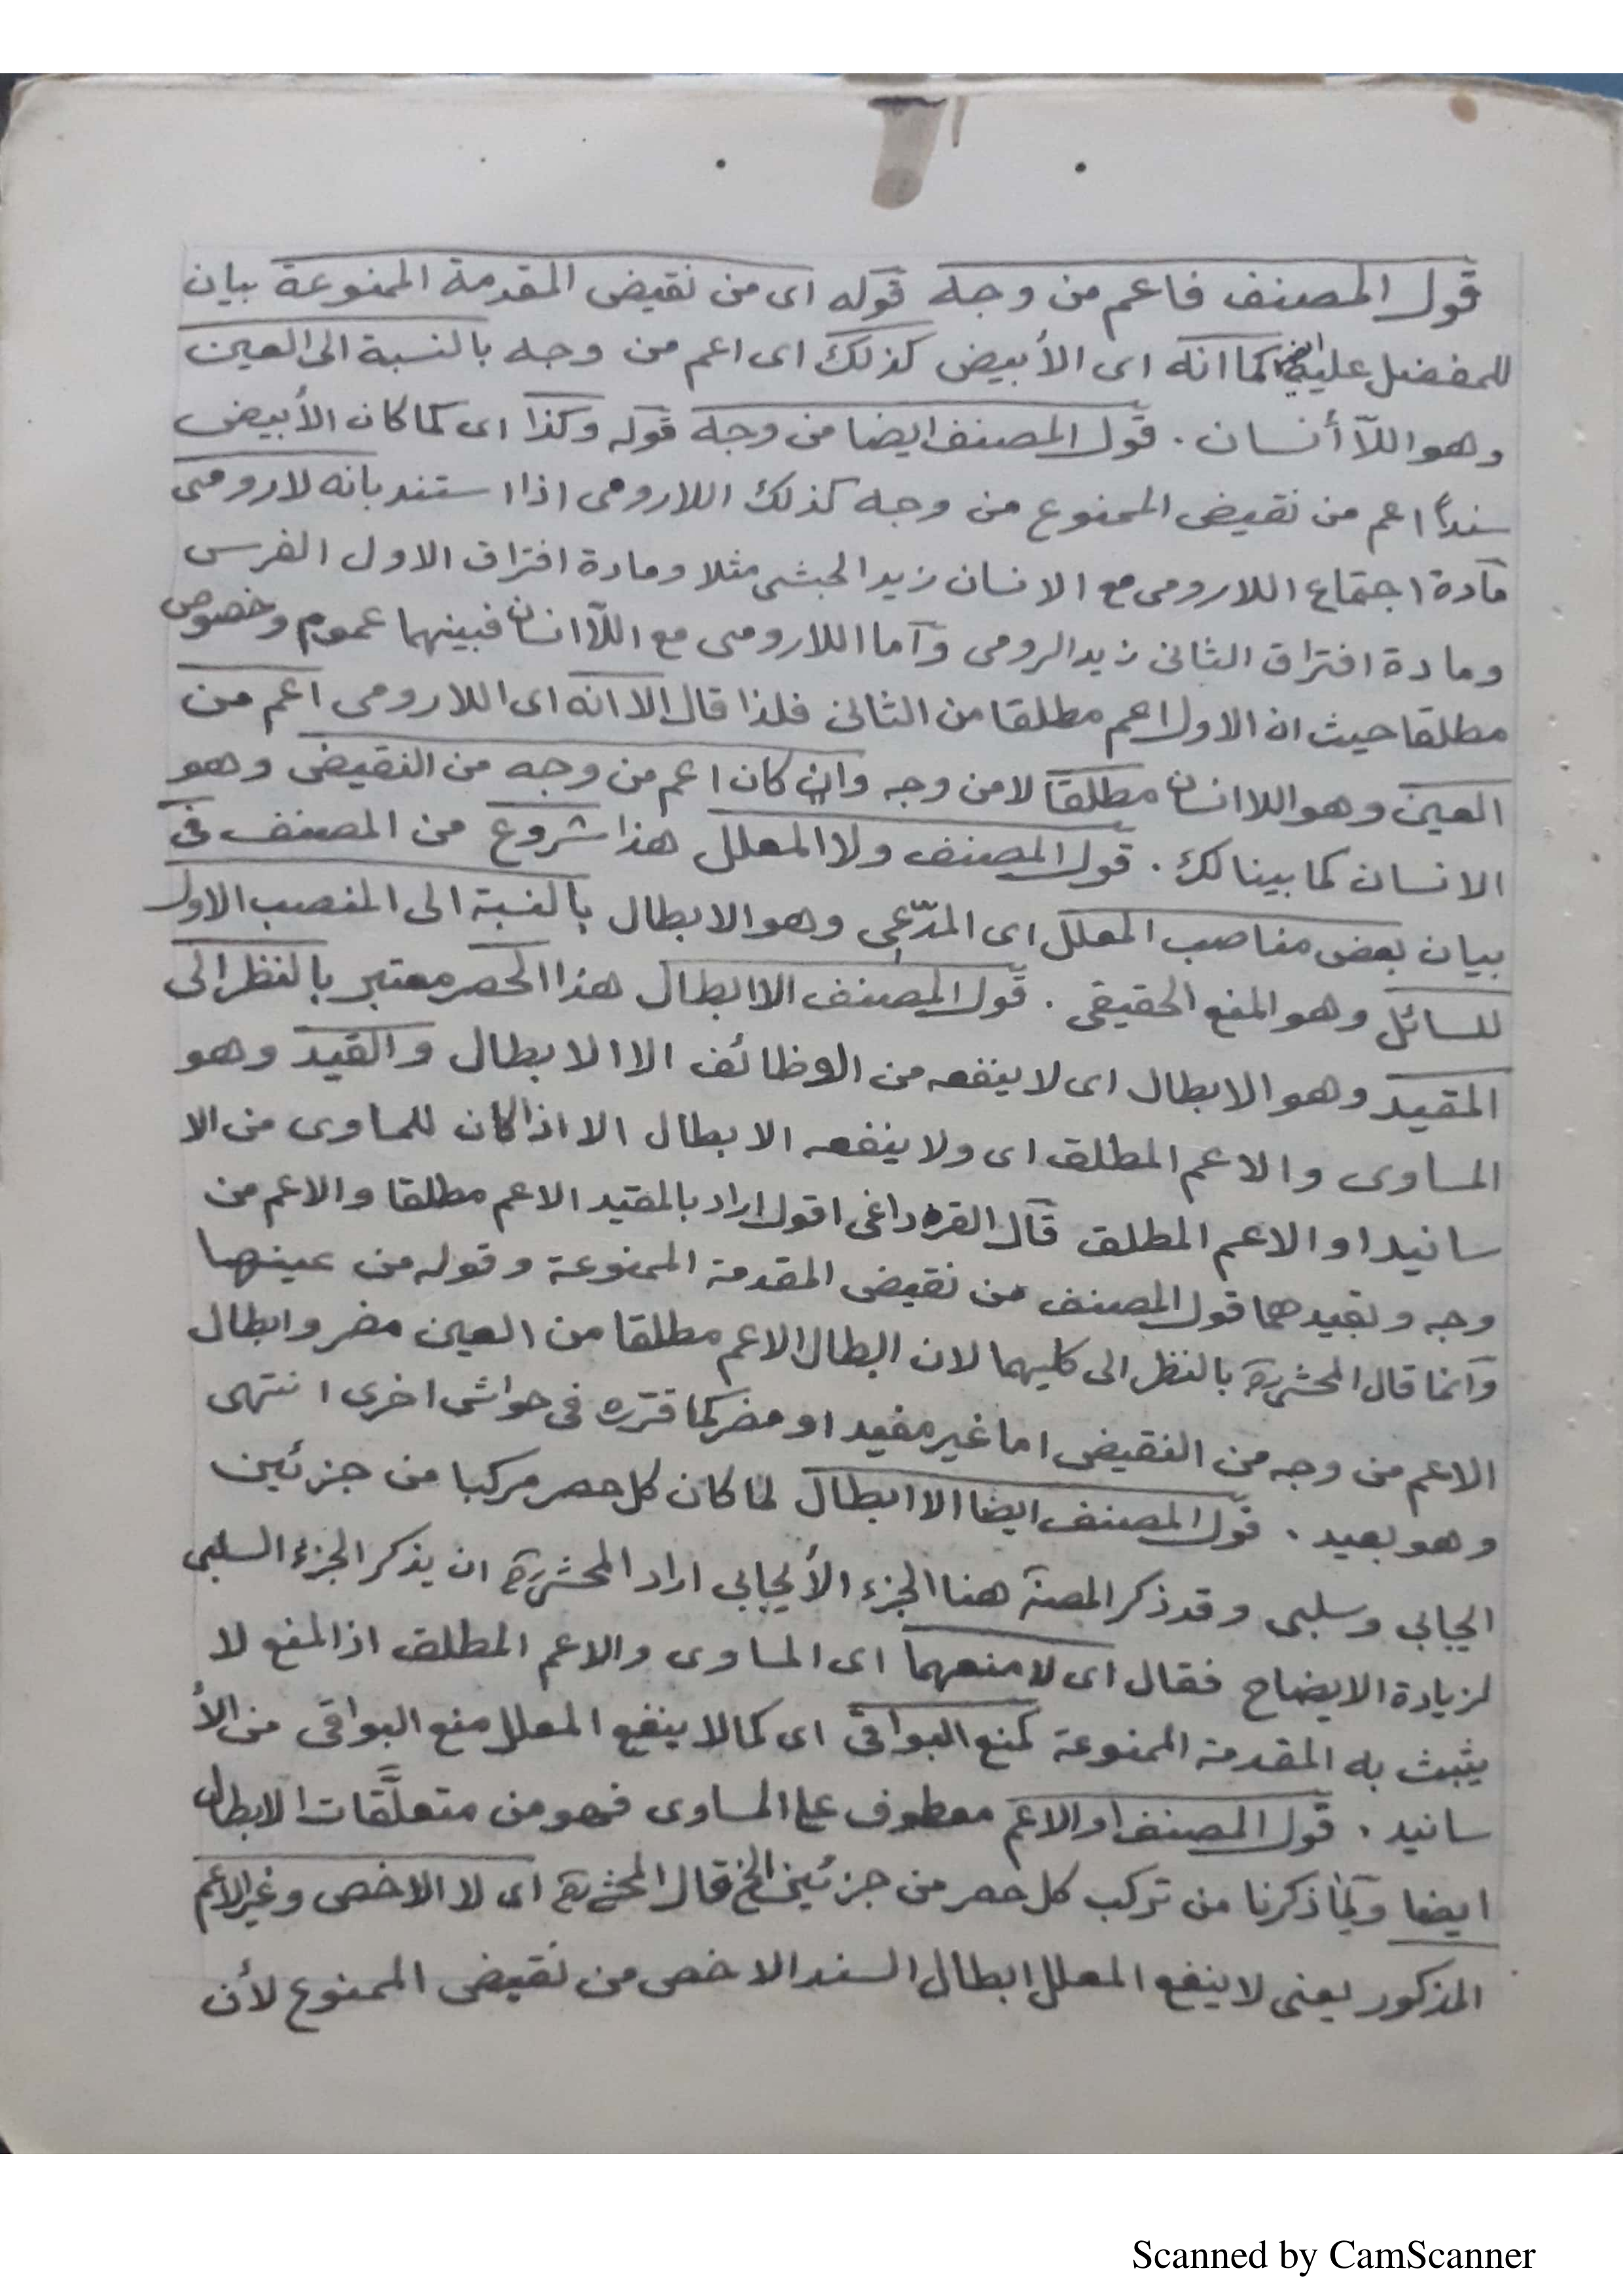 قول المصنف فاعم من وجه قوله اى من نقيض المقدمة الممنوعة بيان
للمفضل عليه ايضا كما انه اى الأبيض كذلك اى اعم من وجه بالنسبة الى العين
وهو اللآ أنسان . قول المصنف ايضا من وجه قوله وكذا اى كما كان الأبيض
سنداً اعم من نقيض الممنوع من وجه كذلك اللارومى اذا استند بانه لا رومى
مادة اجتماع اللارومى مع الانسان زيد الحبشى مثلا ومادة افتراق الاول الفرس
ومادة افتراق الثانى زيد الرومى وآما اللارومى مع اللآانسان فبينهما عموم وخصوص
مطلقا حيث ان الاول اعم مطلقا من الثانى فلذا قال الا انه اى اللارومى اعم من
العين وهو اللا انسان مطلقاً لا من وجه وان كان اعم من وجه من النقيض وهو
الانسان كما بينا لك . قول المصنف ولا المعلل هذا شروع من المصنف فى
بيان بعض مناصب المعلل اى المدّعى وهو الابطال بالنسبة الى المنصب الاول
للسائل وهو المنع الحقيقى . قول المصنف الا ابطال هذا الحصر معتبر بالنظر الى
المقيد وهو الابطال اى لا ينفعه من الوظائف الا الابطال والقيد وهو
المساوى والاعم المطلق اى ولا ينفعه الابطال الا اذا كان للمساوى من الا
سانيد او الاعم المطلق قال القره داغى اقول اراد بالمقيد الاعم مطلقا والاعم من
وجه وبقيدهما قول المصنف من نقيض المقدمة الممنوعة وقوله من عينها
وآنما قال المحشى ره بالنظر الى كليهما لان ابطال الاعم مطلقا من العين مضر وابطال
الاعم من وجه من النقيض اما غير مفيد او مضر كما قرره فى حواشى اخرى انتهى
وهو بعيد . قول المصنف ايضا الا ابطال لما كان كل حصر مركبا من جزئين
ايجابى وسلبى وقد ذكر المصنف هنا الجزء الأيجابى اراد المحشى ره ان يذكر الجزء السلبى
لزيادة الايضاح فقال اى لا منعهما اى المساوى والاعم المطلق اذ المنع لا
يثبت به المقدمة الممنوعة كمنع البواقى اى كما لا ينفع المعلل منع البواقى من الأ
سانيد . قول المصنف او الاعم معطوف على المساوى فهو من متعلَّقات الابطال
ايضا ولما ذكرنا من تركب كل حصر من جزئين الخ قال المحشى ره اى لا الاخص وغير الاعم
المذكور يعنى لا ينفع المعلل ابطال السند الاخص من نقيض الممنوع لأن
Scanned by CamScanner